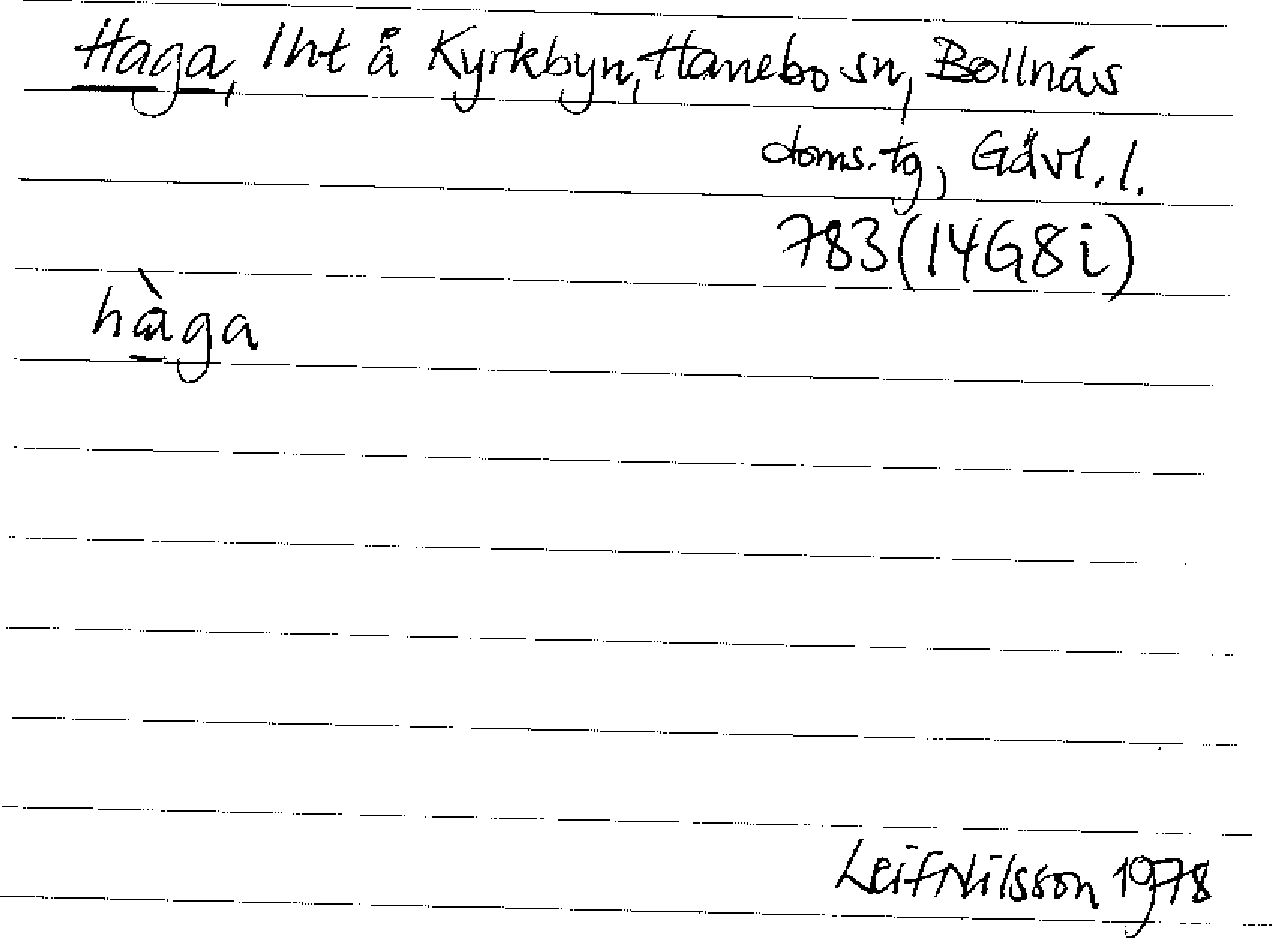 Haga, lht å Kyrkbyn, Hanebo sn, Bollnäs
doms.tg, Gävl. l.
783 (14G8i)
hàga
Leif Nilsson 1978